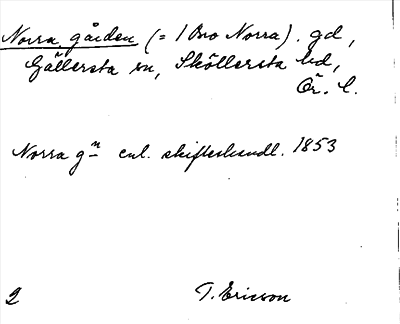 Norra gården (= 1 Bro Norra). gd,
Gällersta sn, Sköllersta hd,
Ör. l.
Norra gn enl. skifteshandl. 1853
2
T. Ericson